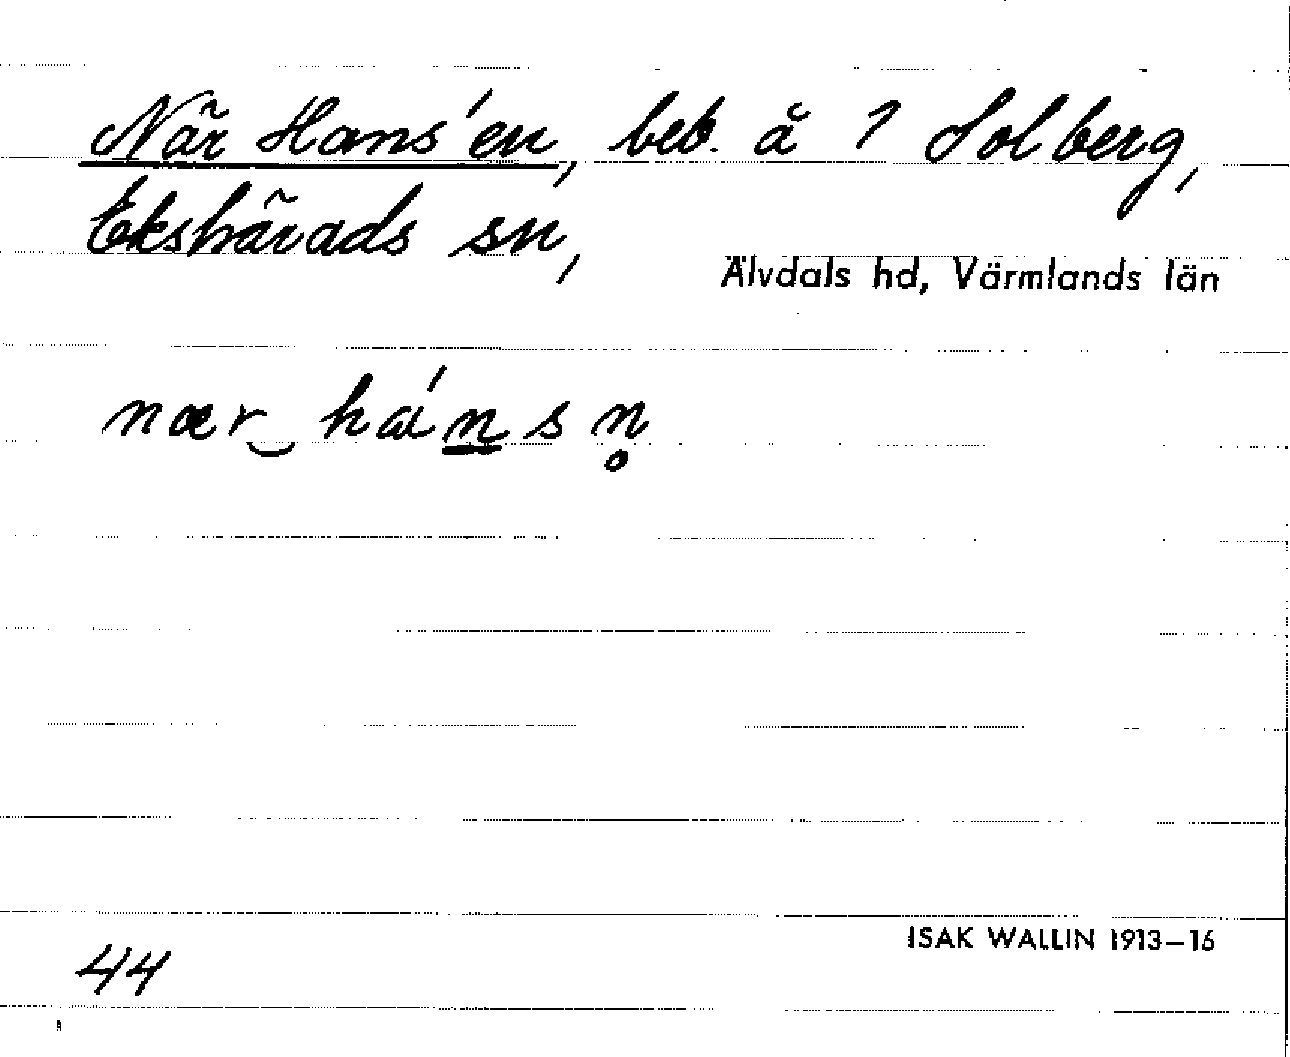 När Hans'en, beb. å 1 Solberg,
Ekshärads sn,
Älvdals hd, Värmlands län
nær‿ háns n̥
ISAK WALLIN 1913–16
44